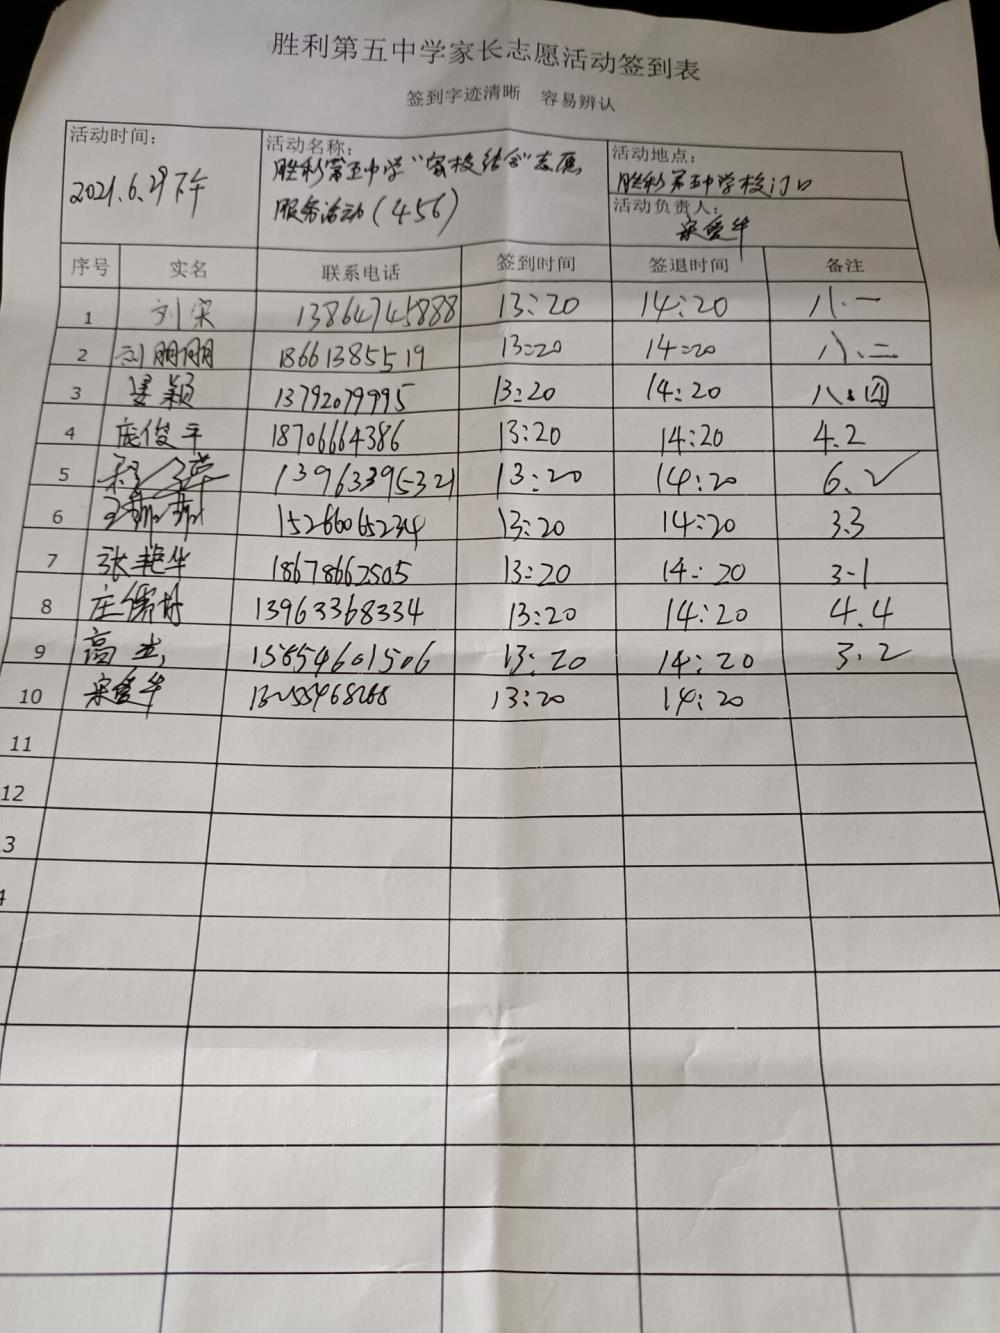 胜利第五中学家长志愿活动签到表
签到字迹清晰 容易辨认
活动时间: 2021.6.29下午
活动名称: 胜利第五中学“家校结合”志愿
服务活动(456)
活动地点: 胜利第五中学校门口
活动负责人: 宋爱华
序号 实名 联系电话 签到时间 签退时间 备注
1 刘宋 13864745888 13:20 14:20 八.一
2 刘朋朋 18661385519 13:20 14:20 八.二
3 颖 13792079995 13:20 14:20 八.四
4 庞俊平 18706664386 13:20 14:20 4.2
5 13963395321 13:20 14:20 6.2
6 王 15266065234 13:20 14:20 3.3
7 张艳华 18678662505 13:20 14:20 3-1
8 庄 13963368334 13:20 14:20 4.4
9 高 15854601506 13:20 14:20 3.2
10 宋爱华 13:20 14:20
11
12
3
4